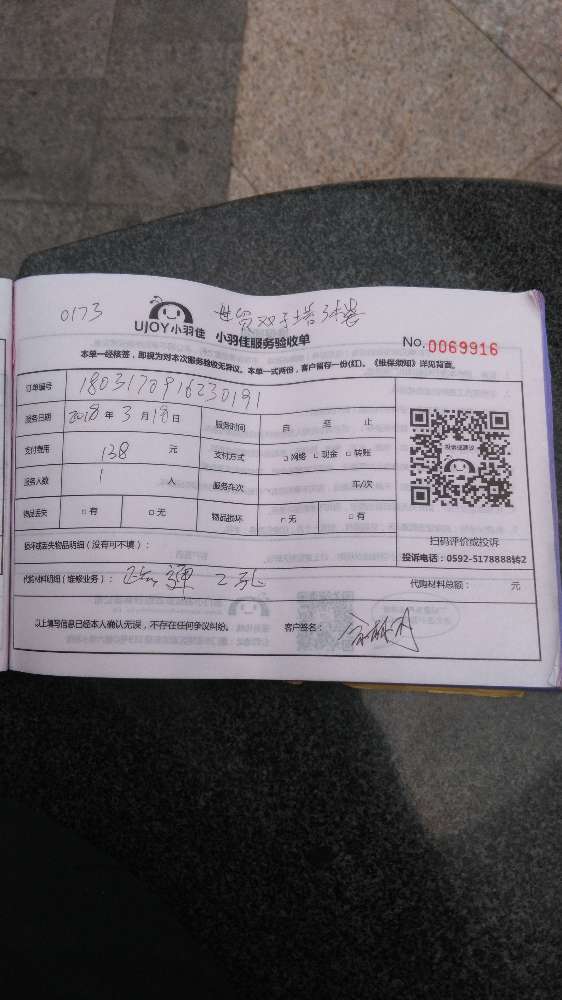 0173 世贸双子塔
UJOY小羽佳 小羽佳服务验收单 No. 0069916
本单一经核签，即视为对本次服务验收无异议。本单一式两份，客户留存一份(红)。《维保须知》详见背面。
订单编号 1803170916230191
服务日期 2018 年 3 月 18 日 服务时间 自 至 止
支付费用 138 元 支付方式 □网络 □现金 □转账
服务人数 1 人 服务车次 车/次
物品丢失 □有 □无 物品损坏 □无 □有
投诉或建议
扫码评价或投诉
投诉电话：0592-5178888转2
损坏或丢失物品明细（没有可不填）：
代购材料明细（维修业务）： 代购材料总额： 元
以上填写信息已经本人确认无误，不存在任何争议纠纷。 客户签名：